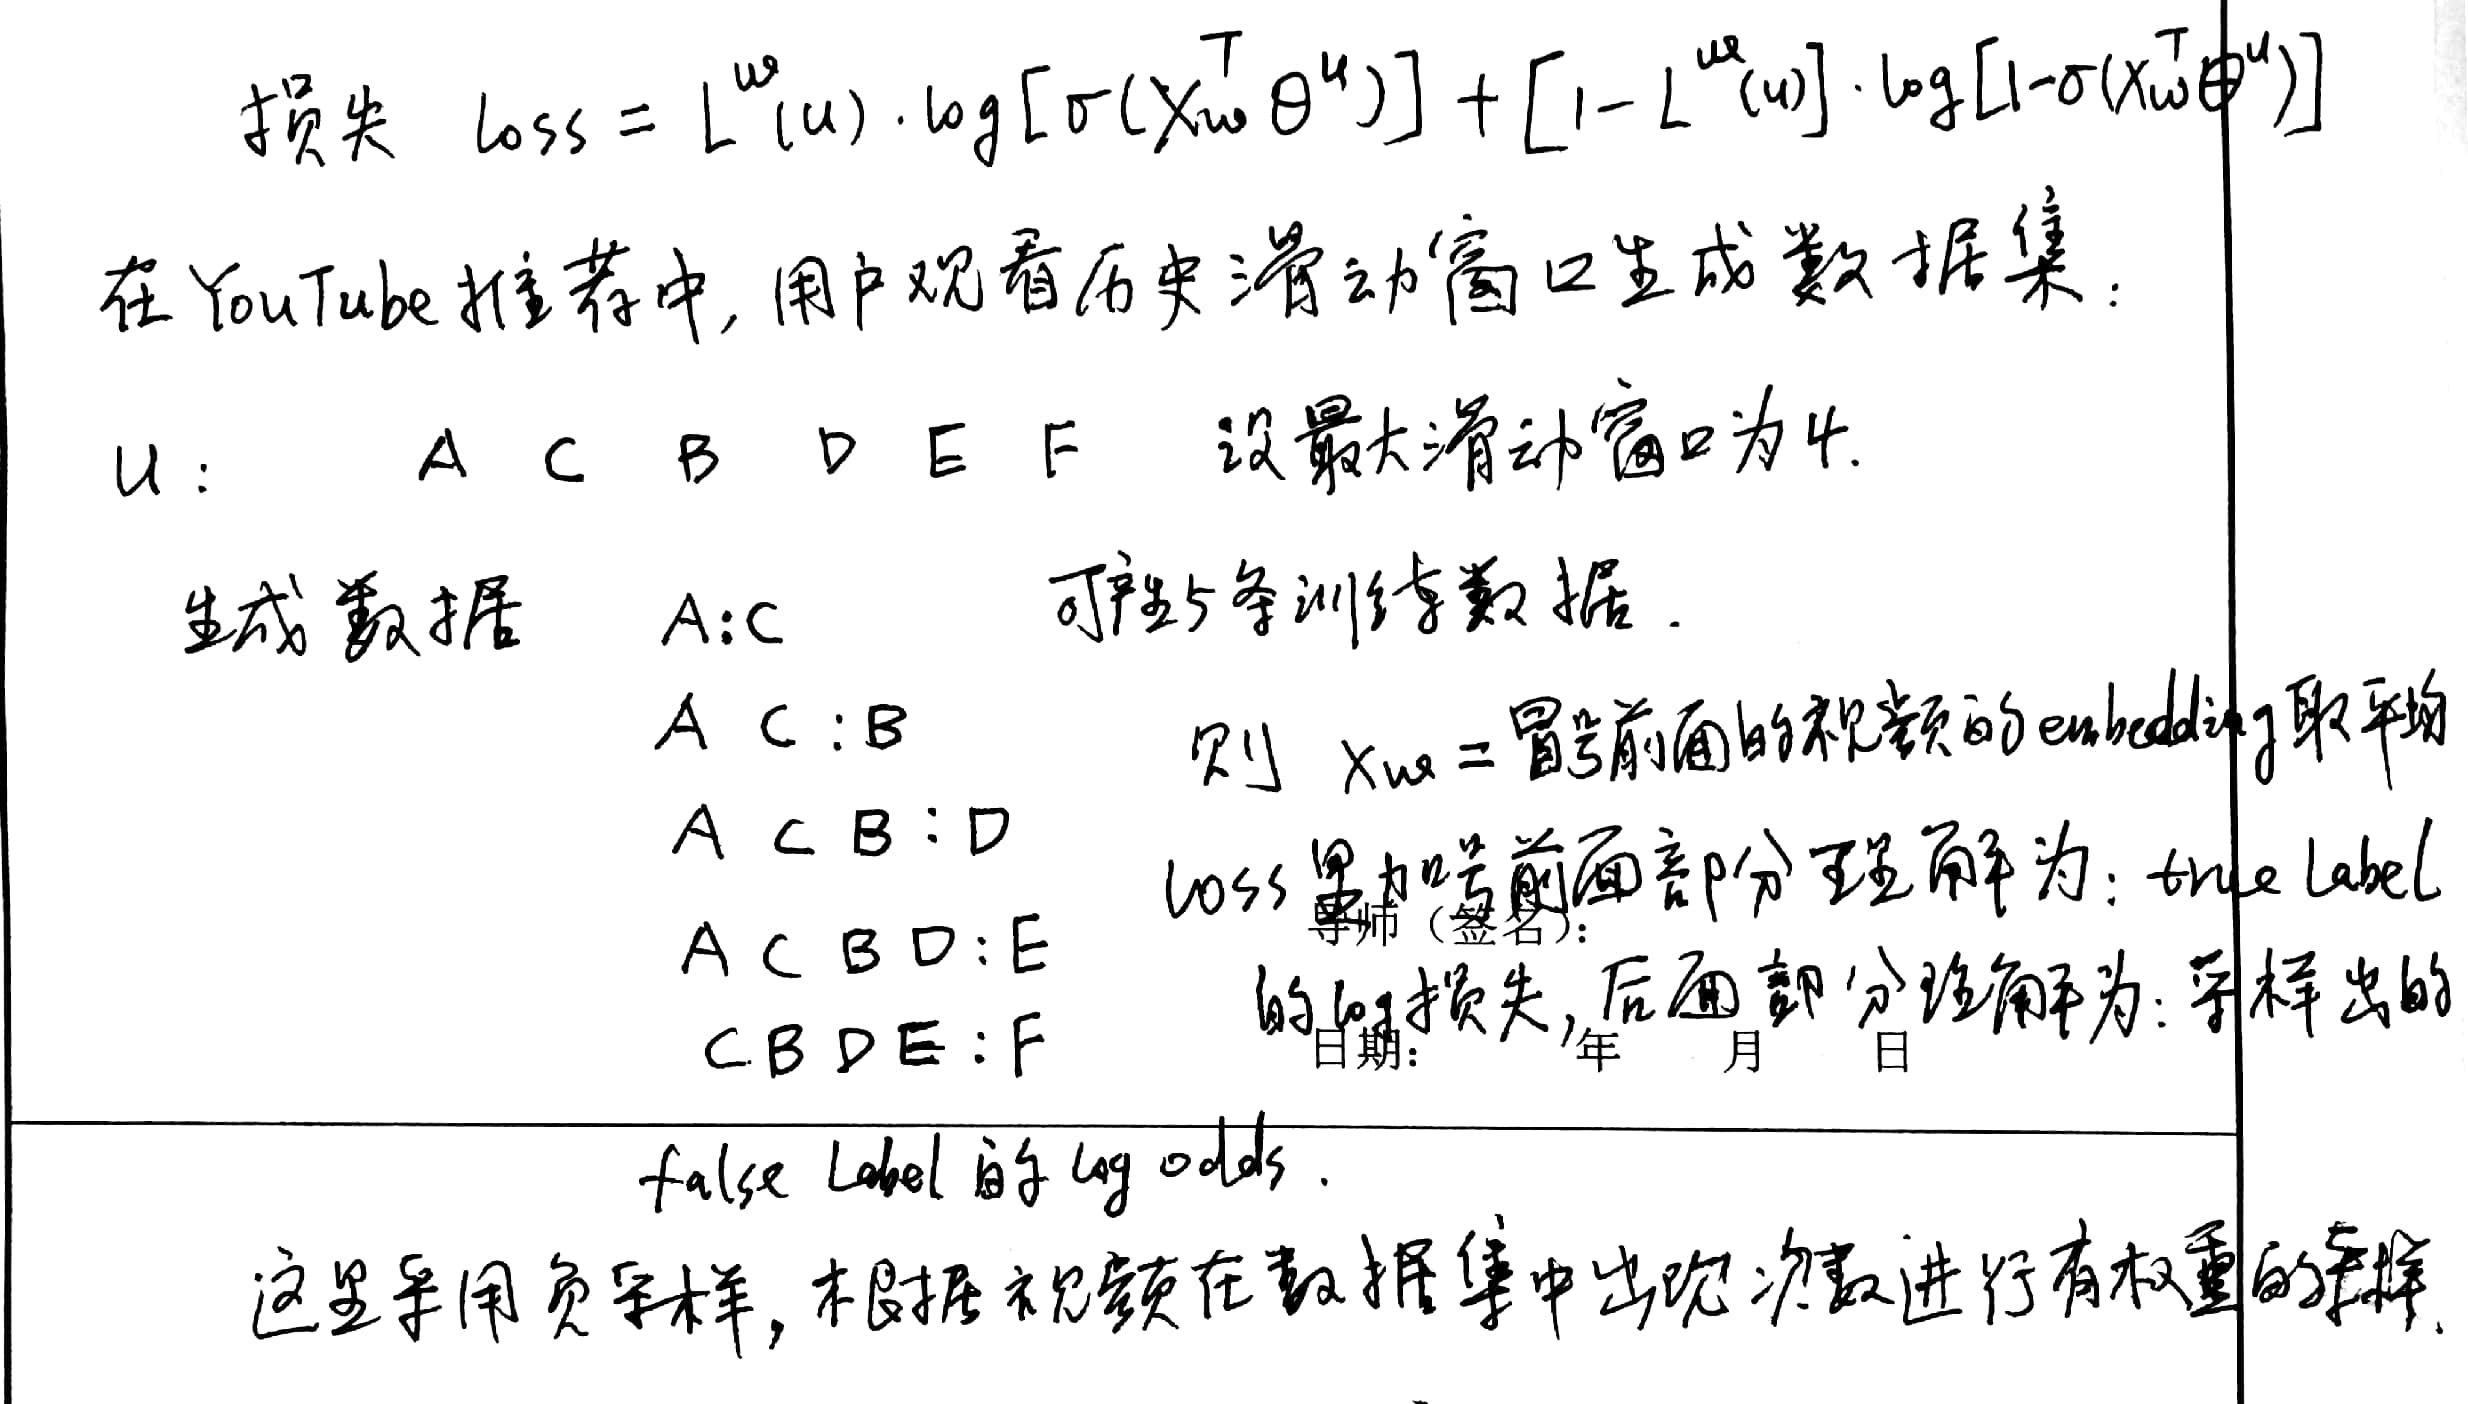 损失 Loss = L^w(u)·log[σ(X_w^T θ^u)] + [1-L^w(u)]·log[1-σ(X_w^T θ^u)]
在YouTube推荐中,用户观看历史滑动窗口生成数据集:
U: A C B D E F 设最大滑动窗口为4.
生成数据 A:C 可产生5条训练数据.
A C:B 则 X_w = 冒号前面的视频的embedding取平均
A C B:D Loss累加号前面部分理解为: true label
导师（签名）:
A C B D:E 的log损失,后面部分理解为:采样出的
C B D E:F 日期: 年 月 日
false Label 的 log odds.
这里采用负采样,根据视频在数据集中出现次数进行有权重的采样.